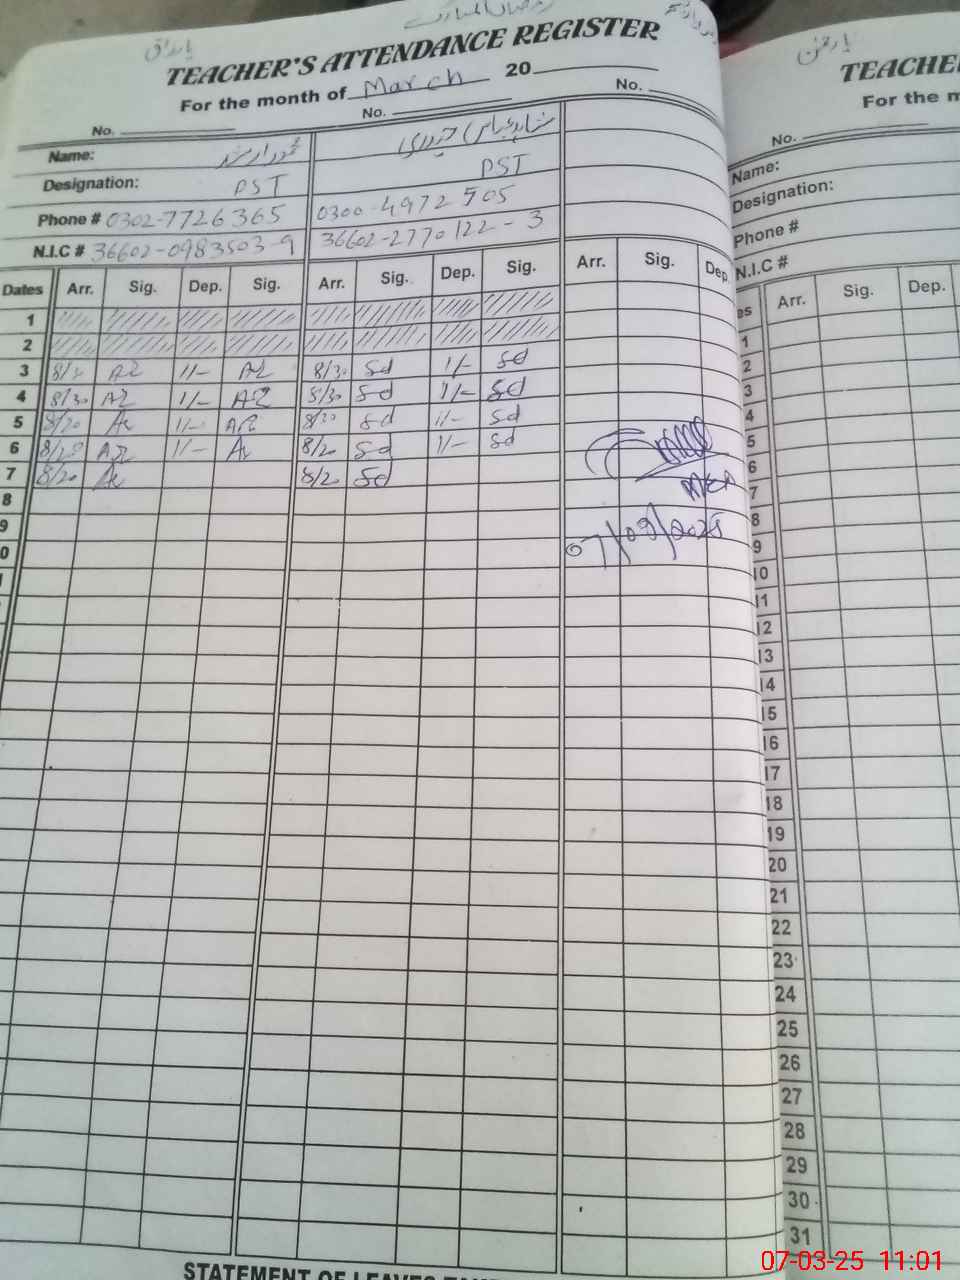 رمضان المبارک
TEACHER'S ATTENDANCE REGISTER
For the month of March 20
No. No. No.
Name: شاہد عباس حیدری
Designation: PST PST
Phone # 0302-7726365 0300-4972505
N.I.C # 36602-0983503-9 36602-2770122-3
Dates Arr. Sig. Dep. Sig. Arr. Sig. Dep. Sig. Arr. Sig. Dep.
1
2
3 8/3 AR 1/- AR 8/30 Sd 1/- Sd
4 8/30 AR 1/- AR 8/30 Sd 1/- Sd
5 8/20 1/- AR 8/20 Sd 1/- Sd
6 8/20 AR 1/- 8/20 Sd 1/- Sd
7 8/20 8/20 Sd
8
9
0
07/03/2025
STATEMENT OF LEAVES
TEACHE
For the m
No.
Name:
Designation:
Phone #
N.I.C #
es Arr. Sig. Dep.
1
2
3
4
5
6
7
8
9
10
11
12
13
14
15
16
17
18
19
20
21
22
23
24
25
26
27
28
29
30
31
07-03-25 11:01